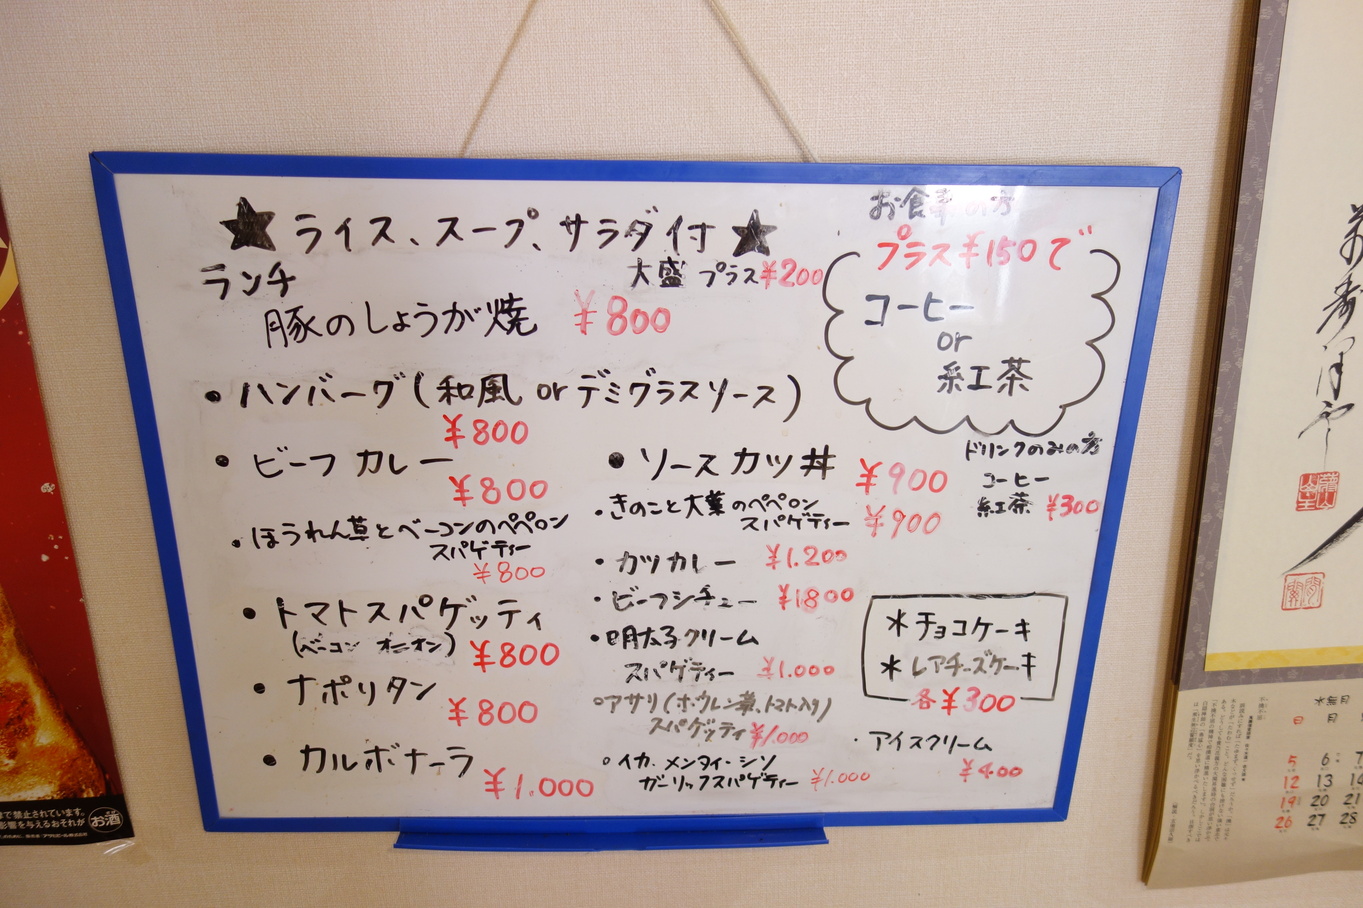 ★ライス、スープ、サラダ付★
ランチ
大盛 プラス¥200
豚のしょうが焼 ¥800
・ハンバーグ(和風 or デミグラスソース)
¥800
・ビーフカレー
¥800
・ほうれん草とベーコンのペペロン
スパゲティー
¥800
・トマトスパゲッティ
(ベーコン オニオン) ¥800
・ナポリタン
¥800
・カルボナーラ
¥1.000
・ソースカツ丼 ¥900
・きのこと大葉のペペロン
スパゲティー ¥900
・カツカレー ¥1.200
・ビーフシチュー ¥1800
・明太子クリーム
スパゲティー ¥1.000
○アサリ(ホウレン草、トマト入り)
スパゲッティ ¥1,000
○イカ.メンタイ・シソ
ガーリックスパゲティー ¥1.000
お食事の方
プラス¥150で
コーヒー
or
紅茶
ドリンクのみの方
コーヒー
紅茶 ¥300
*チョコケーキ
*レアチーズケーキ
各¥300
・アイスクリーム
¥400
お酒
で禁止されています。
影響を与えるおそれが
日 月
5 6 7
12 13 14
19 20 21
26 27 28